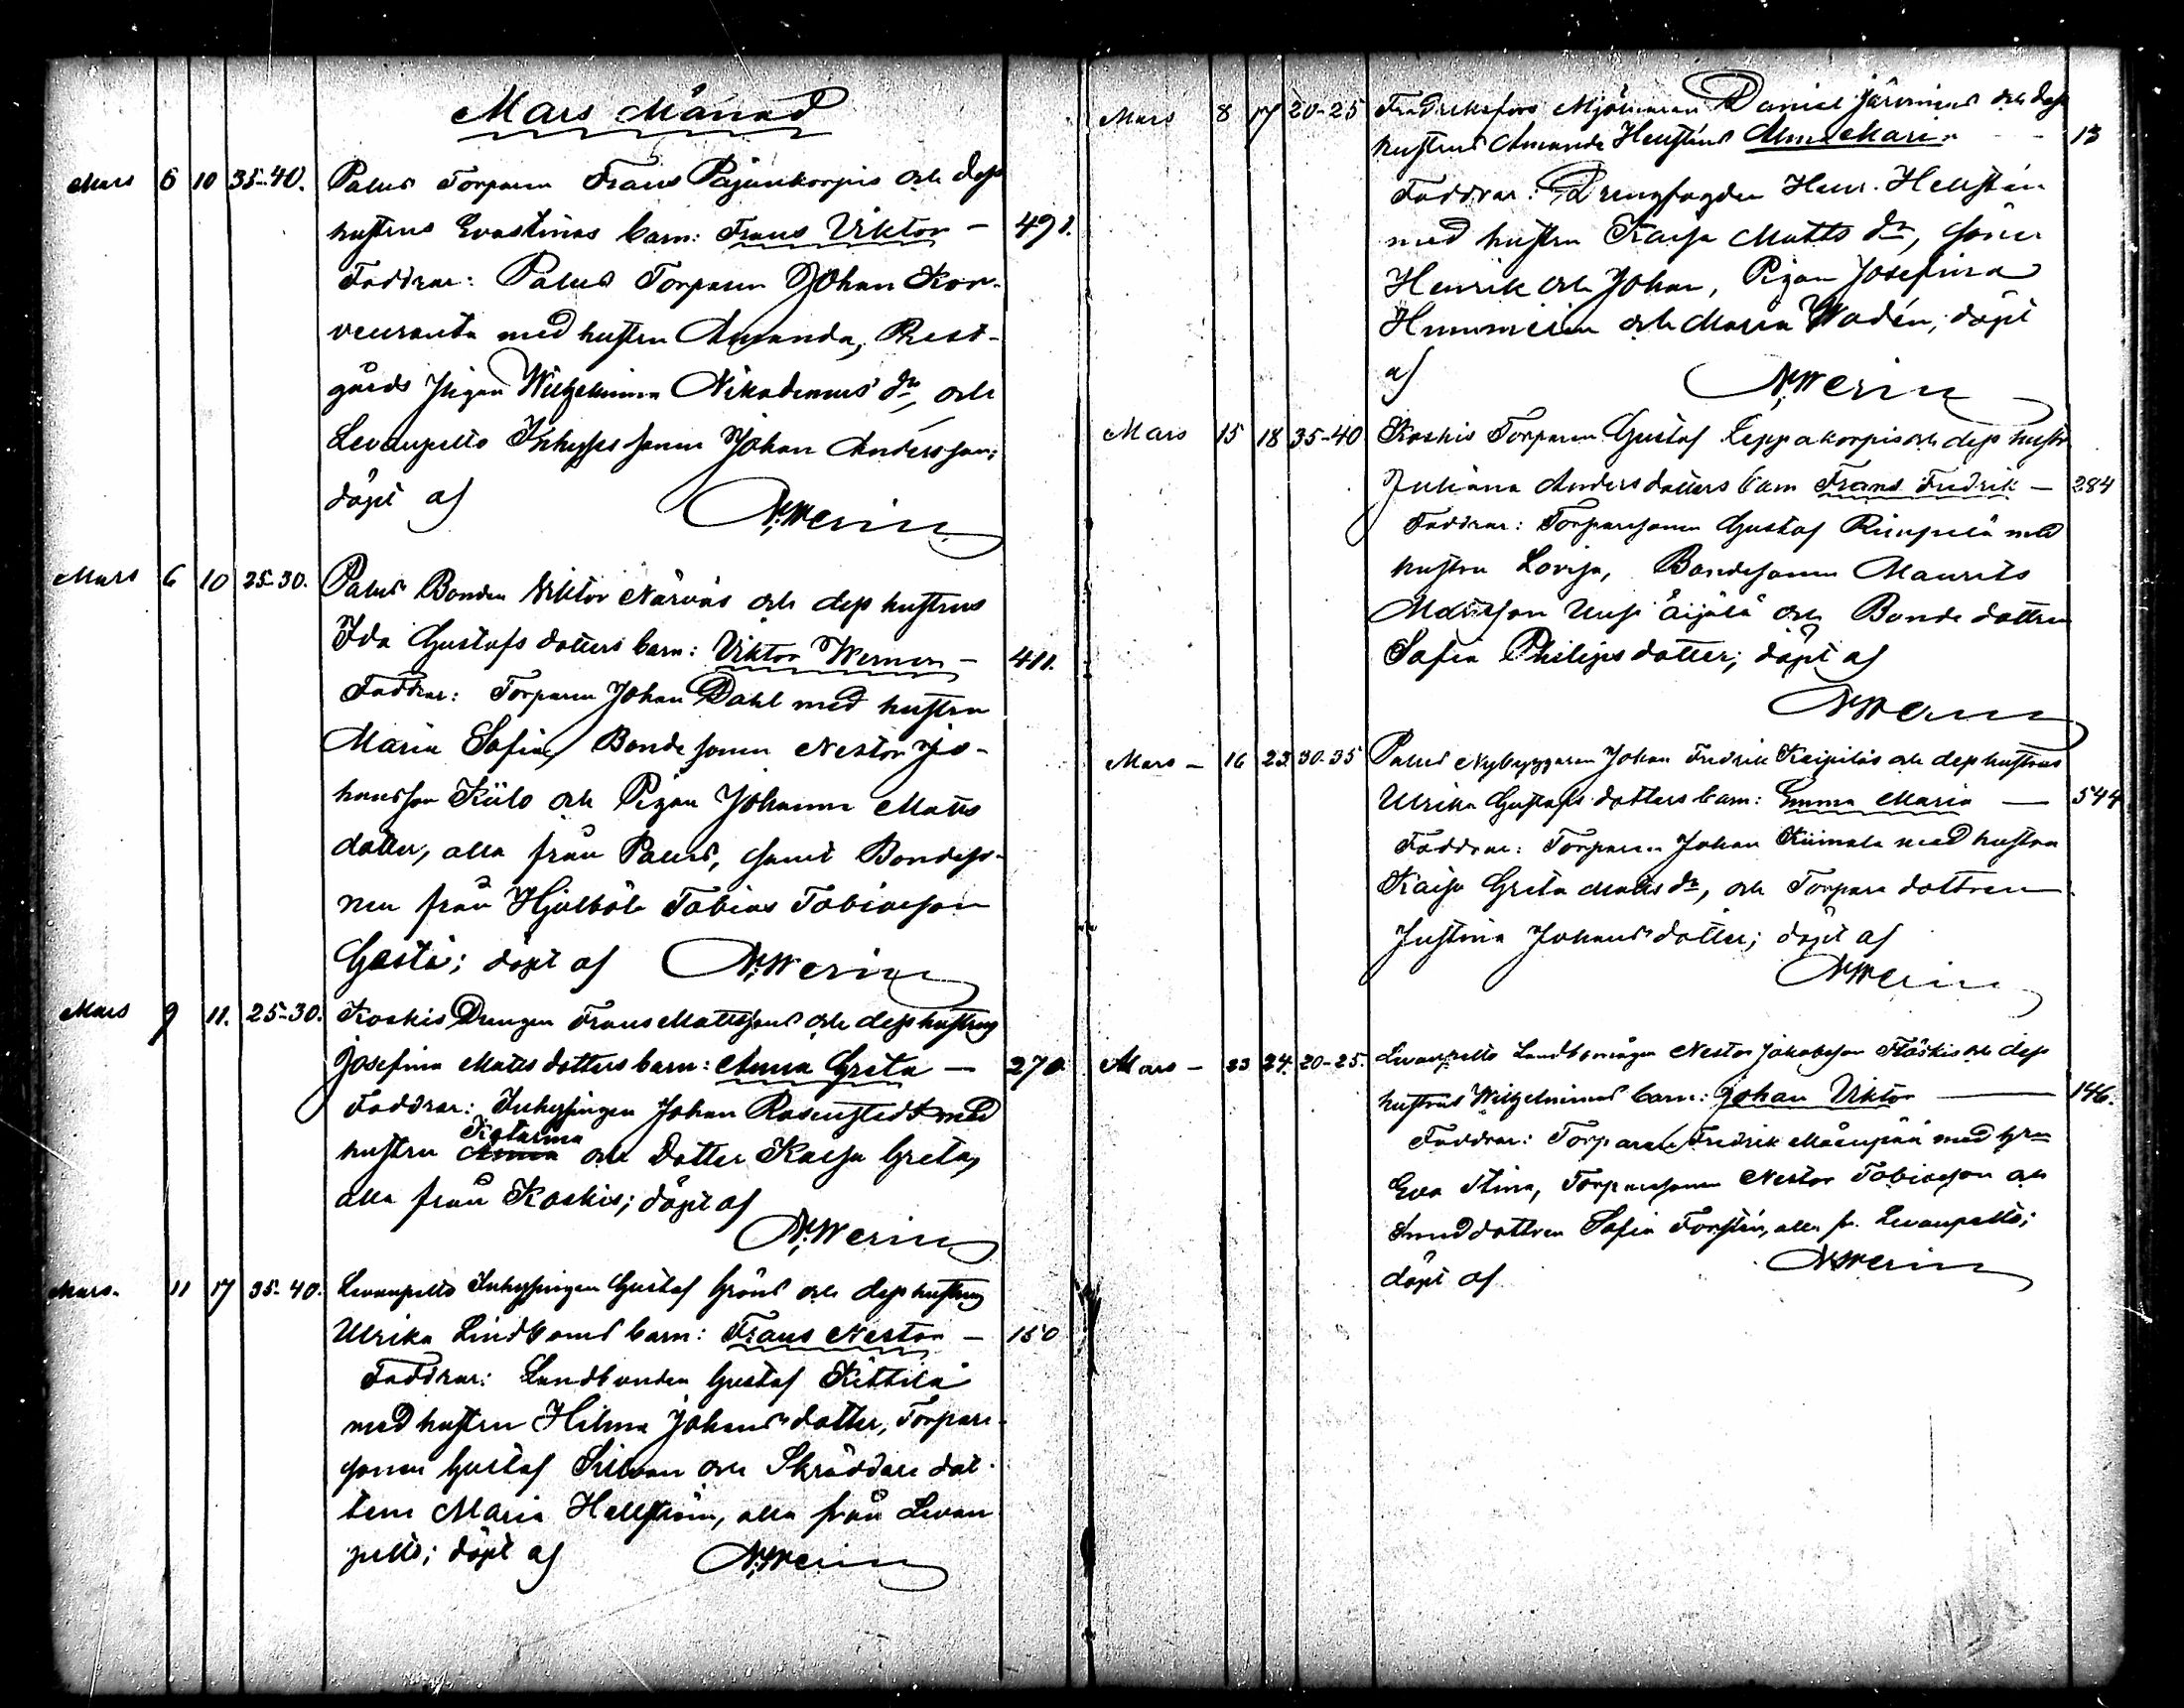 Mars Månad
Mars 6 10 35-40. Palus Torparen Frans Pajunkorpis och dess
hustrus Evastinas barn: Frans Viktor — 491.
Faddrar: Palus Torparen Johan Kor-
venranta med hustru Amanda, Prest-
gårds Pigan Wilhelmina Nikodemus dr, och
Levanpelto Inhyses sonen Johan Andersson;
döpt af N. Werin
Mars 6 10 25-30. Palus Bonden Viktor Närväs och dess hustrus
Ida Gustafs dotters barn: Viktor Werner — 411.
Faddrar: Torparen Johan Dahl med hustru
Maria Sofia, Bonde sonen Nestor Jo-
hansson Kiilo och Pigan Johanna Matts
dotter, alla från Palus, samt Bondeso-
nen från Hjulböle Tobias Tobiasson
Gästi; döpt af N. Werin
Mars 9 11. 25-30. Koskis Drengen Frans Mattssons och dess hustrus
Josefina Matts dotters barn: Anna Greta — 270
Faddrar: Inhysingen Johan Rosenstedt med
hustru Anna Katarina och dotter Kaisa Greta,
alla från Koskis; döpt af
N. Werin
Mars. 11 17 35-40. Levanpelto Inhysingen Gustaf Gröns och dess hustrus
Ulrika Lindboms barn: Frans Nestor — 150
Faddrar: Landbonden Gustaf Kittilä
med hustru Hilma Johans dotter, Torpare-
sonen Gustaf och Skräddare dot-
tern Maria Hellström, alla från Levan
pelto; döpt af N. Werin
Mars 8 17 20-25 Fredriksfors Mjölnaren Daniel Järvinens och dess
hustrus Amanda Hellsténs Alma Maria — 13
Faddrar: Drengfogden Henr. Hellstén
med hustru Kaisa Matts dr, söner
Henrik och Johan, Pigan Josefina
och Maria Wadén; döpt
af N. Werin
Mars 15 18 35-40 Koskis Torparen Gustaf Leppäkorpis och dess hustr
Juliana Anders dotters barn Frans Fredrik — 284
Faddrar: Torparesonen Gustaf med
hustru Lovisa, Bondesonen Maurits
Mattsson Uusi äijälä och Bonde dottren
Sofia Philips dotter; döpt af
N. Werin
Mars — 16 23 30-35 Palus Nybyggaren Johan Fredrik Keipiläs och dess hustrus
Ulrika Gustafs dotters barn: Emma Maria — 544
Faddrar: Torparen Johan Kiimala med hustru
Kaisa Greta Matts dr, och Torpare dottren
Justina Johans dotter; döpt af
N. Werin
Mars — 23 24. 20-25. Levanpelto Landbomågen Nestor Jakobsson Fläskis och dess
hustrus Wilhelminas barn: Johan Viktor — 146.
Faddrar: Torparen Fredrik Mäenpää med hru
Eva Stina, Torparesonen Nestor Tobiasson och
Smeddottren Sofia Forstén, alla fr. Levanpelto;
döpt af N. Werin